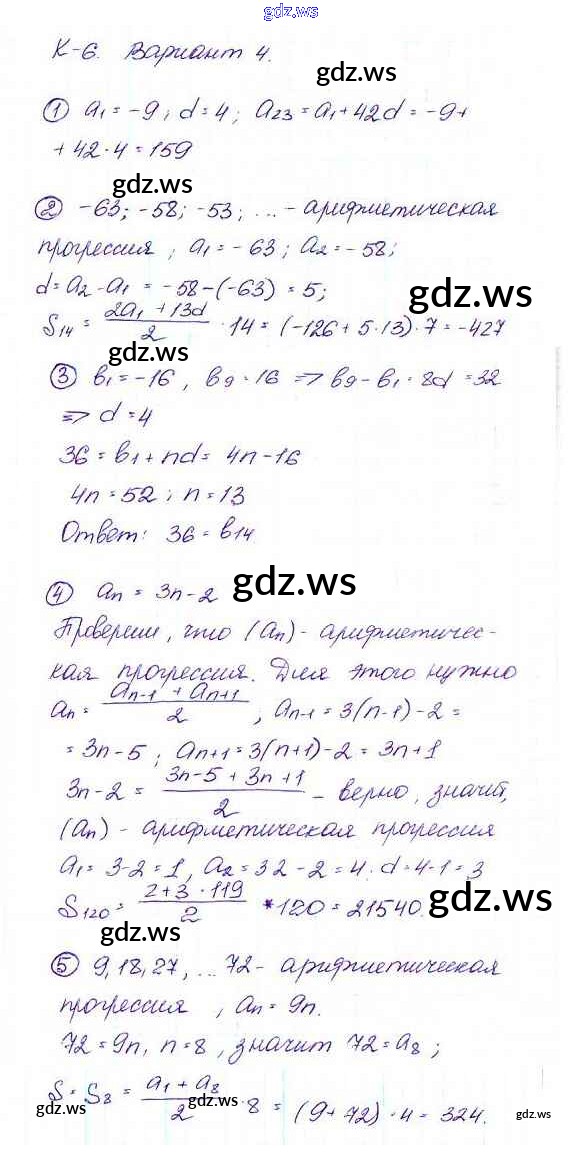 gdz.ws
К-6. Вариант 4.
gdz.ws
① a₁ = -9; d = 4; a₂₃ = a₁ + 42d = -9 +
+ 42·4 = 159
gdz.ws
② -63; -58; -53; ... - арифметическая
прогрессия; a₁ = -63; a₂ = -58;
d = a₂ - a₁ = -58 - (-63) = 5;
gdz.ws
S₁₄ = (2a₁ + 13d)/2 · 14 = (-126 + 5·13)·7 = -427
gdz.ws
③ b₁ = -16, b₉ = 16 => b₉ - b₁ = 8d = 32
=> d = 4
36 = b₁ + nd = 4n - 16
4n = 52; n = 13
Ответ: 36 = b₁₄.
gdz.ws
④ aₙ = 3n - 2
Проверим, что (aₙ) - арифметичес-
кая прогрессия. Для этого нужно
aₙ = (aₙ₋₁ + aₙ₊₁)/2, aₙ₋₁ = 3(n-1) - 2 =
= 3n - 5; aₙ₊₁ = 3(n+1) - 2 = 3n + 1
3n - 2 = (3n - 5 + 3n + 1)/2 - верно, значит,
(aₙ) - арифметическая прогрессия
a₁ = 3 - 2 = 1, a₂ = 3·2 - 2 = 4. d = 4 - 1 = 3
S₁₂₀ = (2 + 3·119)/2 * 120 = 21540.
gdz.ws
gdz.ws
⑤ 9, 18, 27, ... 72 - арифметическая
прогрессия, aₙ = 9n.
72 = 9n, n = 8, значит 72 = a₈;
S = S₈ = (a₁ + a₈)/2 · 8 = (9 + 72)·4 = 324.
gdz.ws
gdz.ws
gdz.ws